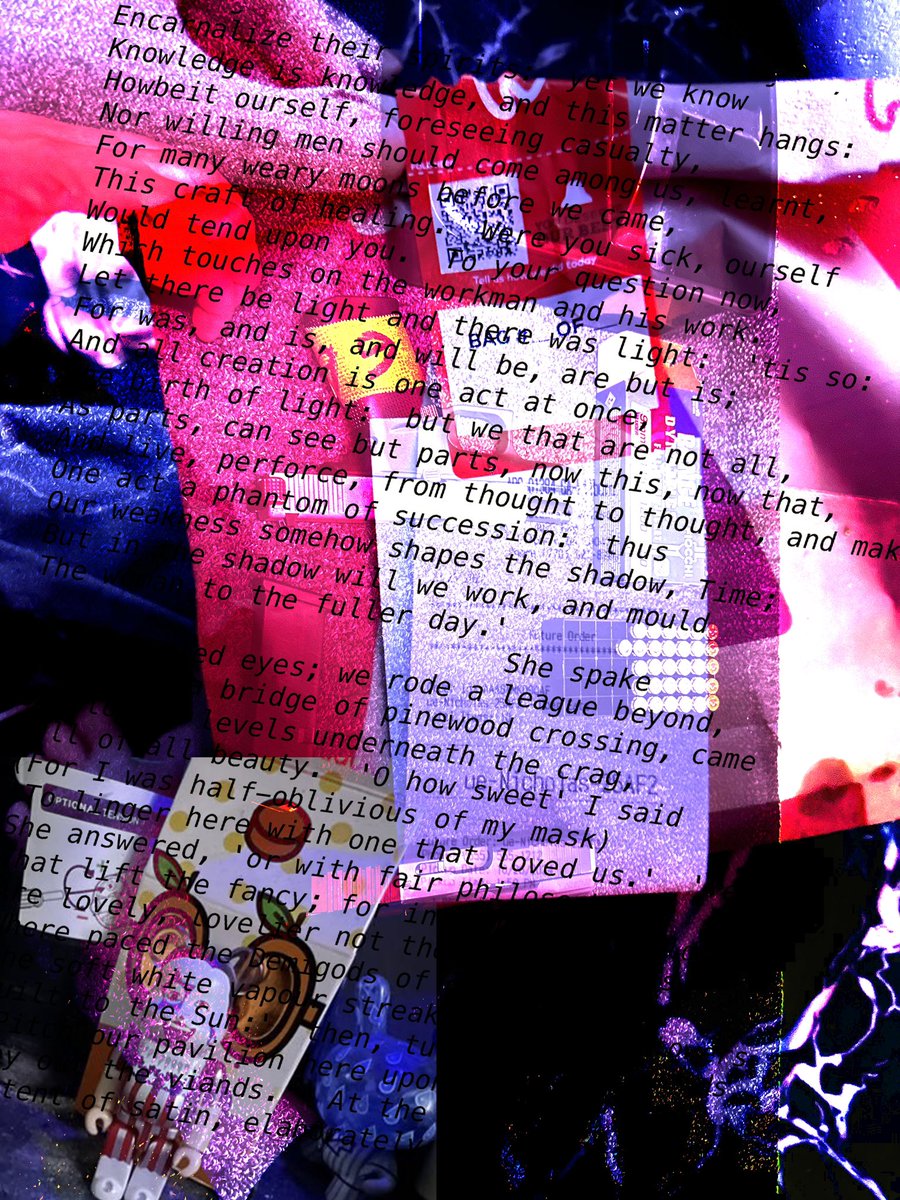 Encarnalize their spirits: yet we know
Knowledge is knowledge, and this matter hangs:
Howbeit ourself, foreseeing casualty,
Nor willing men should come among us, learnt,
For many weary moods before we came,
This craft of healing. Were you sick, ourself
Would tend upon you. To your question now,
Which touches on the workman and his work.
Let there be light and there was light: 'tis so:
For was, and is, and will be, are but is;
And all creation is one act at once,
birth of light: but we that are not all,
As parts, can see but parts, now this, now that,
And live, perforce, from thought to thought, and mak
One act a phantom of succession: thus
Our weakness somehow shapes the shadow, Time;
But in shadow will we work, and mould
The to the fuller day.'
She spake
ed eyes; we rode a league beyond,
bridge of pinewood crossing, came
levels underneath the crag,
ll of all beauty. 'O how sweet' I said
(For I was half-oblivious of my mask)
'To linger here with one that loved us.' '
She answered, 'or with fair philos
hat lift the fancy; for in
re lovely, lovelier not the
here paced the Demigods of
he soft white vapour streak
uilt to the Sun:' then, tu
Pitch our pavilion here upon
ay out the viands. At the
tent of satin, elaborately
Tell us how today
BAG OF
Future Order
ue-Nicholas AF2
OPTICAL